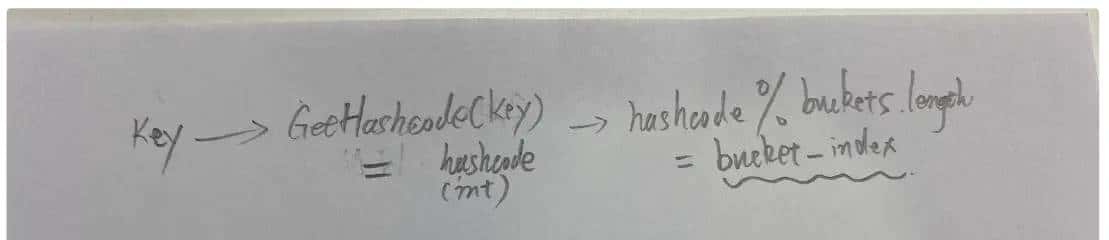 Key → GetHashcode(key) → hashcode % buckets.length
= hashcode = bucket_index
(int)